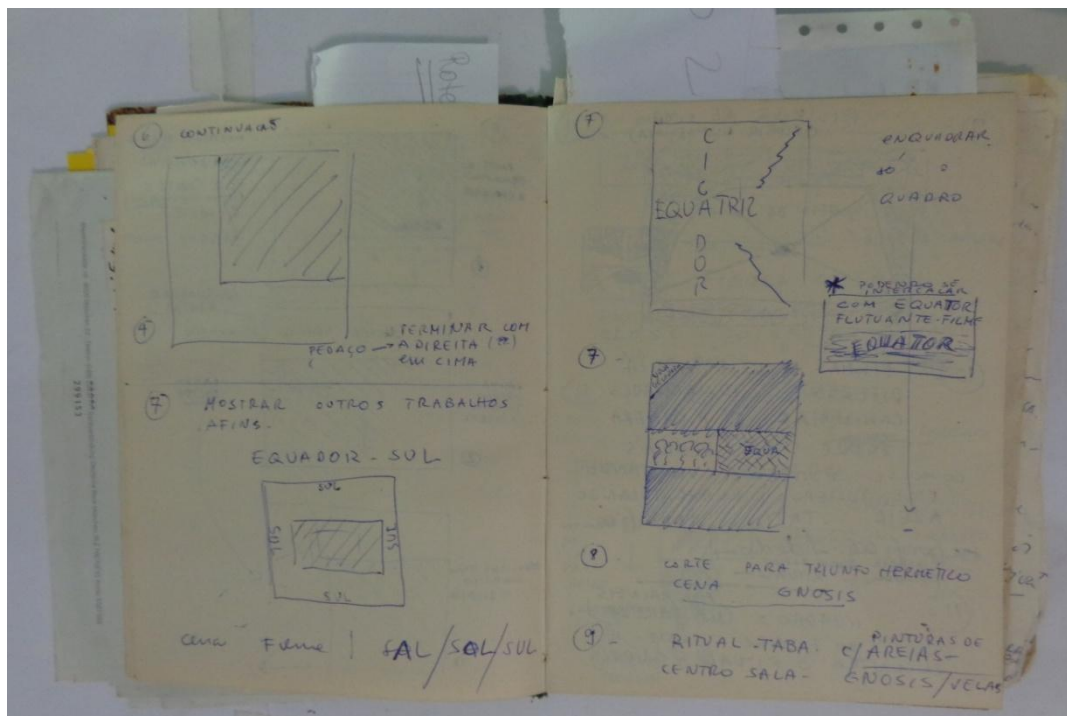 Rote
2
6 CONTINUAÇÃO
4
PEDAÇO → TERMINAR COM
A DIREITA
EM CIMA
7 MOSTRAR OUTROS TRABALHOS
AFINS-
EQUADOR - SUL
SUL
SUL
SUL
SUL
cena Filme | SAL/SOL/SUL
7
C
I
C
EQUATRIZ
D
O
R
ENQUADRAR
só o
QUADRO
* PODENDO SE
INTERCALAR
COM EQUATOR
FLUTUANTE-FILME
EQUATOR
7-
EQUA
8
CORTE PARA TRIUNFO HERMETICO
CENA GNOSIS
9- RITUAL-TABA- C/ PINTURAS DE
AREIAS-
CENTRO SALA- GNOSIS/VELAS
299153